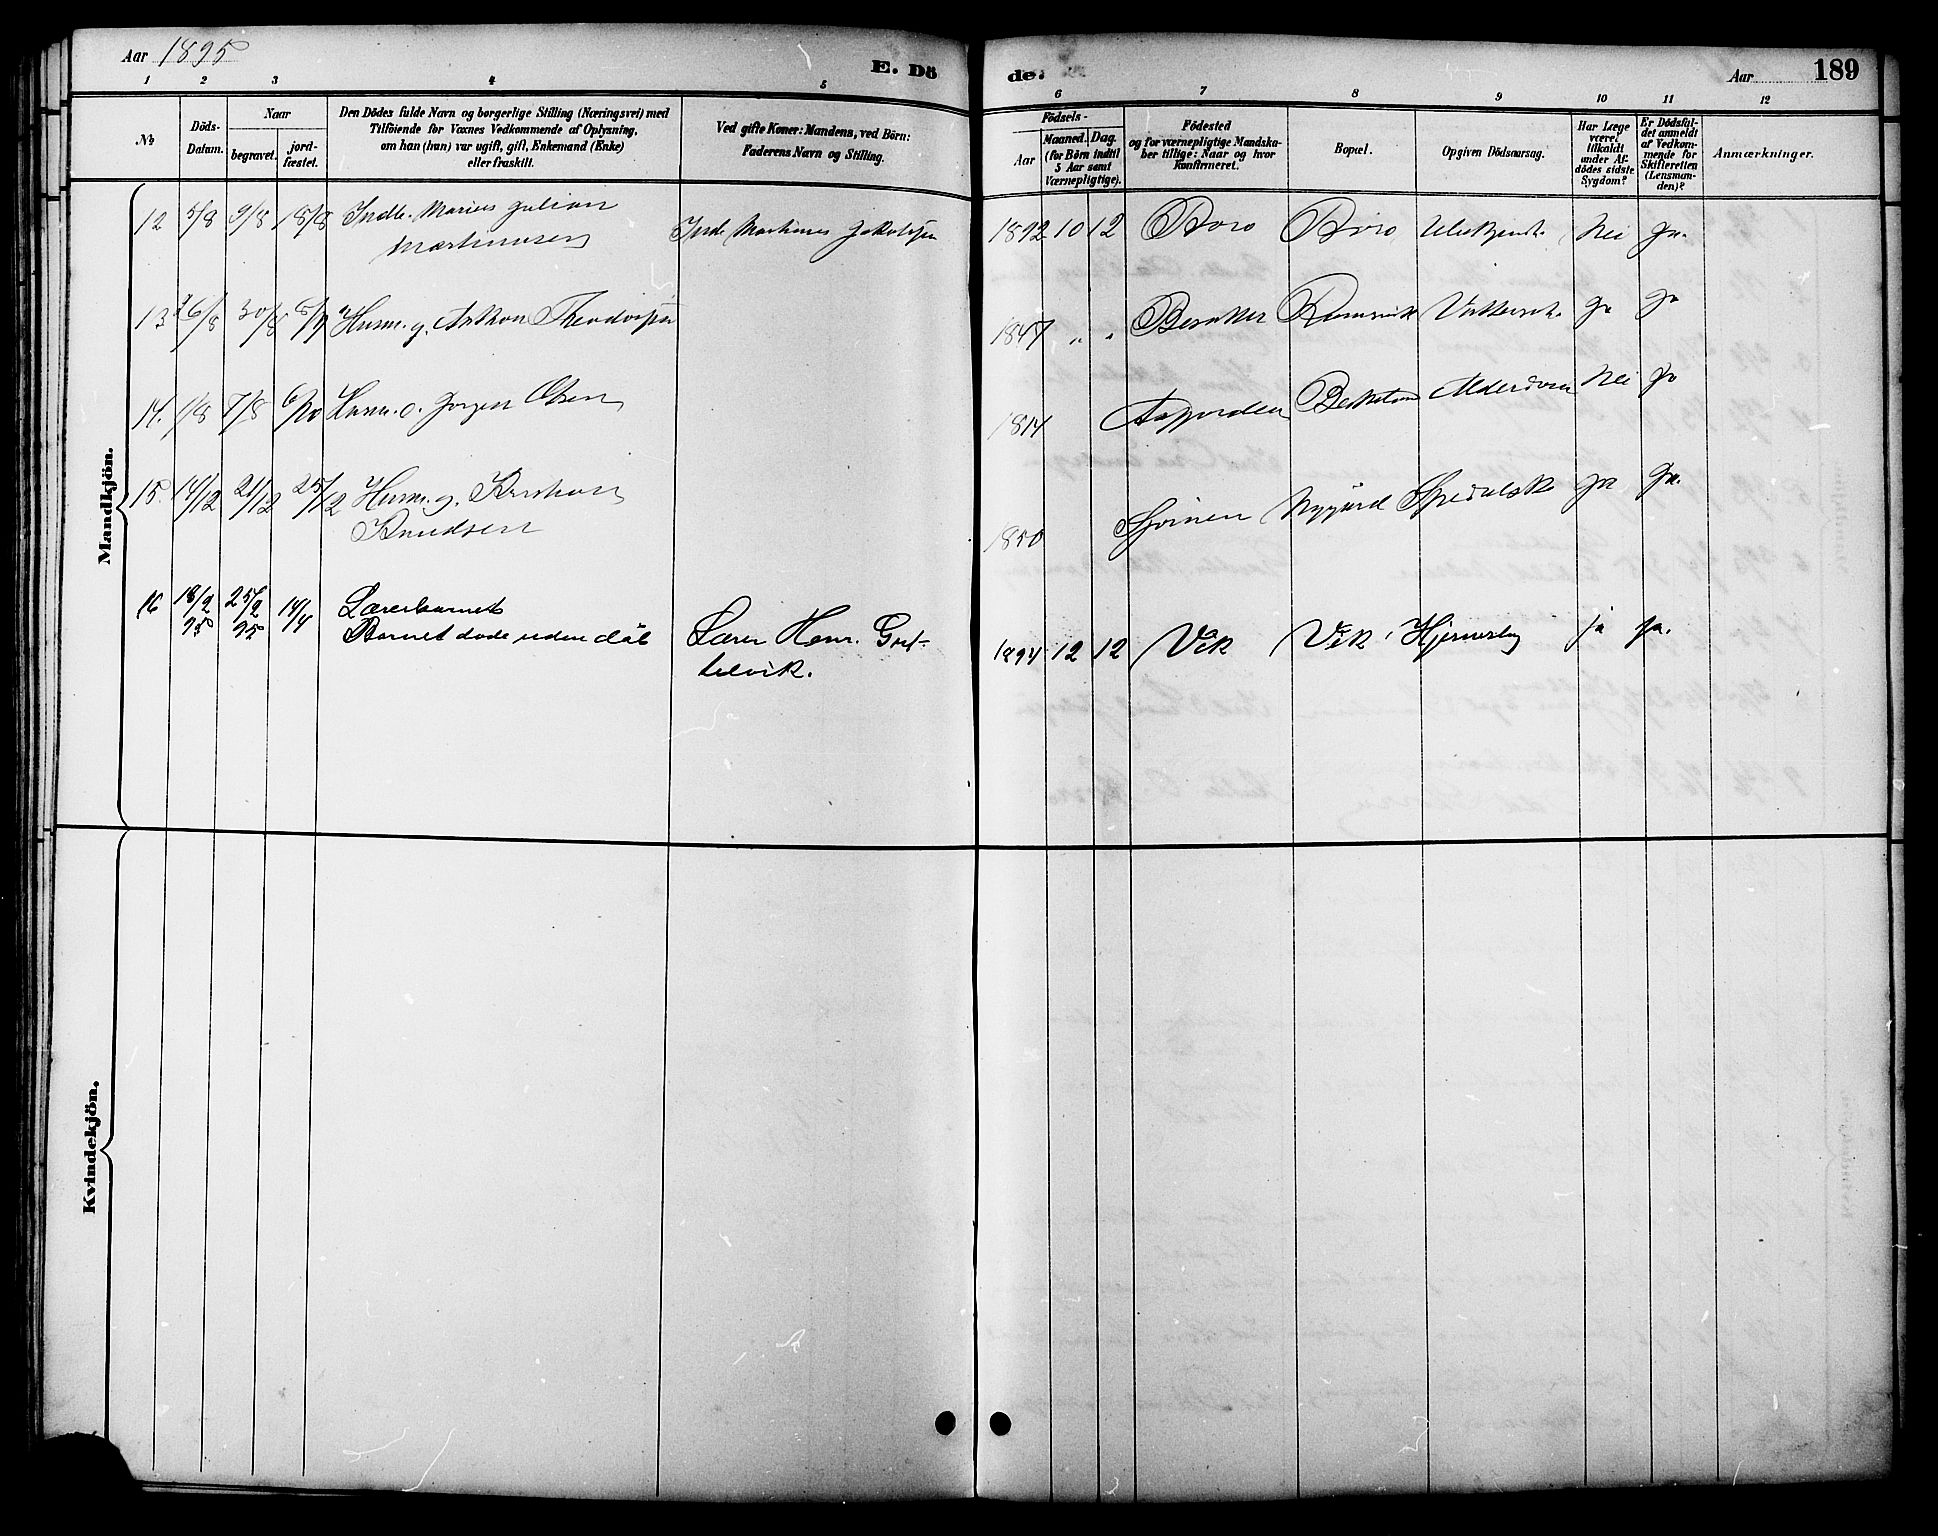 Aar 1895
E. Dö
de.
Aar
189
1 2 3 4 5 6 7 8 9 10 11 12
№
Döds-
Datum.
Naar
begravet.
jord-
fæstet.
Den Dödes fulde Navn og borgerlige Stilling (Næringsvei) med
Tilföiende for Voxnes Vedkommende af Oplysning,
om han (hun) var ugift, gift, Enkemand (Enke)
eller fraskilt.
Ved gifte Koner: Mandens, ved Börn:
Faderens Navn og Stilling.
Födsels-
Aar
Maaned.
Dag.
(for Börn indtil
5 Aar samt
Værnepligtige).
Födested
og for værnepligtige Mandska-
ber tillige: Naar og hvor
konfirmeret.
Bopæl.
Opgiven Dödsaarsag.
Har Læge
været
tilkaldt
under Af-
dödes sidste
Sygdom?
Er Dödsfal-
det anmeldt
af Vedkom-
mende for
Skifteretten
(Lensman-
den)?
Anmærkninger.
Mandkjön.
12 5/8 9/8 18/8 Indb. Marius Julian
Martinusen
Inds Martinus Jakobsen
1892 10 12 Boro Boro Nei Ja.
13 26/8 30/8 Husm. g. Theodorsen
1847 " " Ja Ja
14. 1/8 7/8 6/10 Husm. Jørgen Olsen
1814 Nei Ja
15. 14/12 21/12 25/12 Husm. g.
Knudsen
1850 Nygård Spedalsk Ja Ja.
16 18/2 95 25/2 95 14/4 Lærerbarnet
Barnet døde uden dåb
Lærer Henr.
1894 12 12 Vik Vik ja ja.
Kvindekjön.